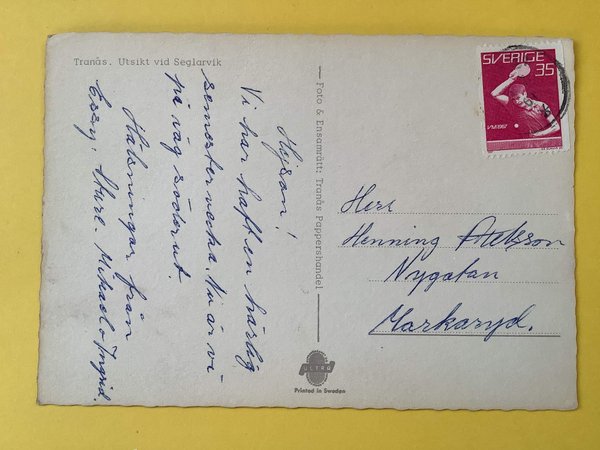 Tranås. Utsikt vid Seglarvik
Hejsan!
Vi har haft en härlig
semestervecka. Nu är vi
på väg söderut
Hälsningar från
Essy. Sture. Mikael o Ingrid.
Foto & Ensamrätt: Tranås Pappershandel
SVERIGE
35
VM 1967
Herr
Henning Axelsson
Nygatan
Markaryd.
ULTRA
Printed in Sweden